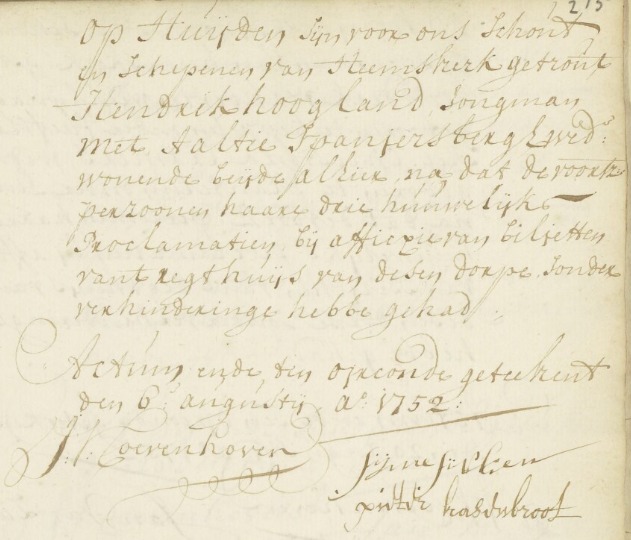 215
op Huijden sijn voor ons Schout
en Schepenen van Heemskerk getrout
Hendrik hoogland, Jongman
met Aaltie Spanjersbergh, wed:
wonende beijde alhier, na dat de voorsz
perzoonen haare drie huuwelijks
Proclamatien, bij affiexie van biljetten
vant regthuijs van desen dorpe, sonder
verhinderinge hebbe gehad
Actum ende ten oirconde geteekent
den 6e augusty, Ao 1752:
Coevenhoven
pietter hasdubroot